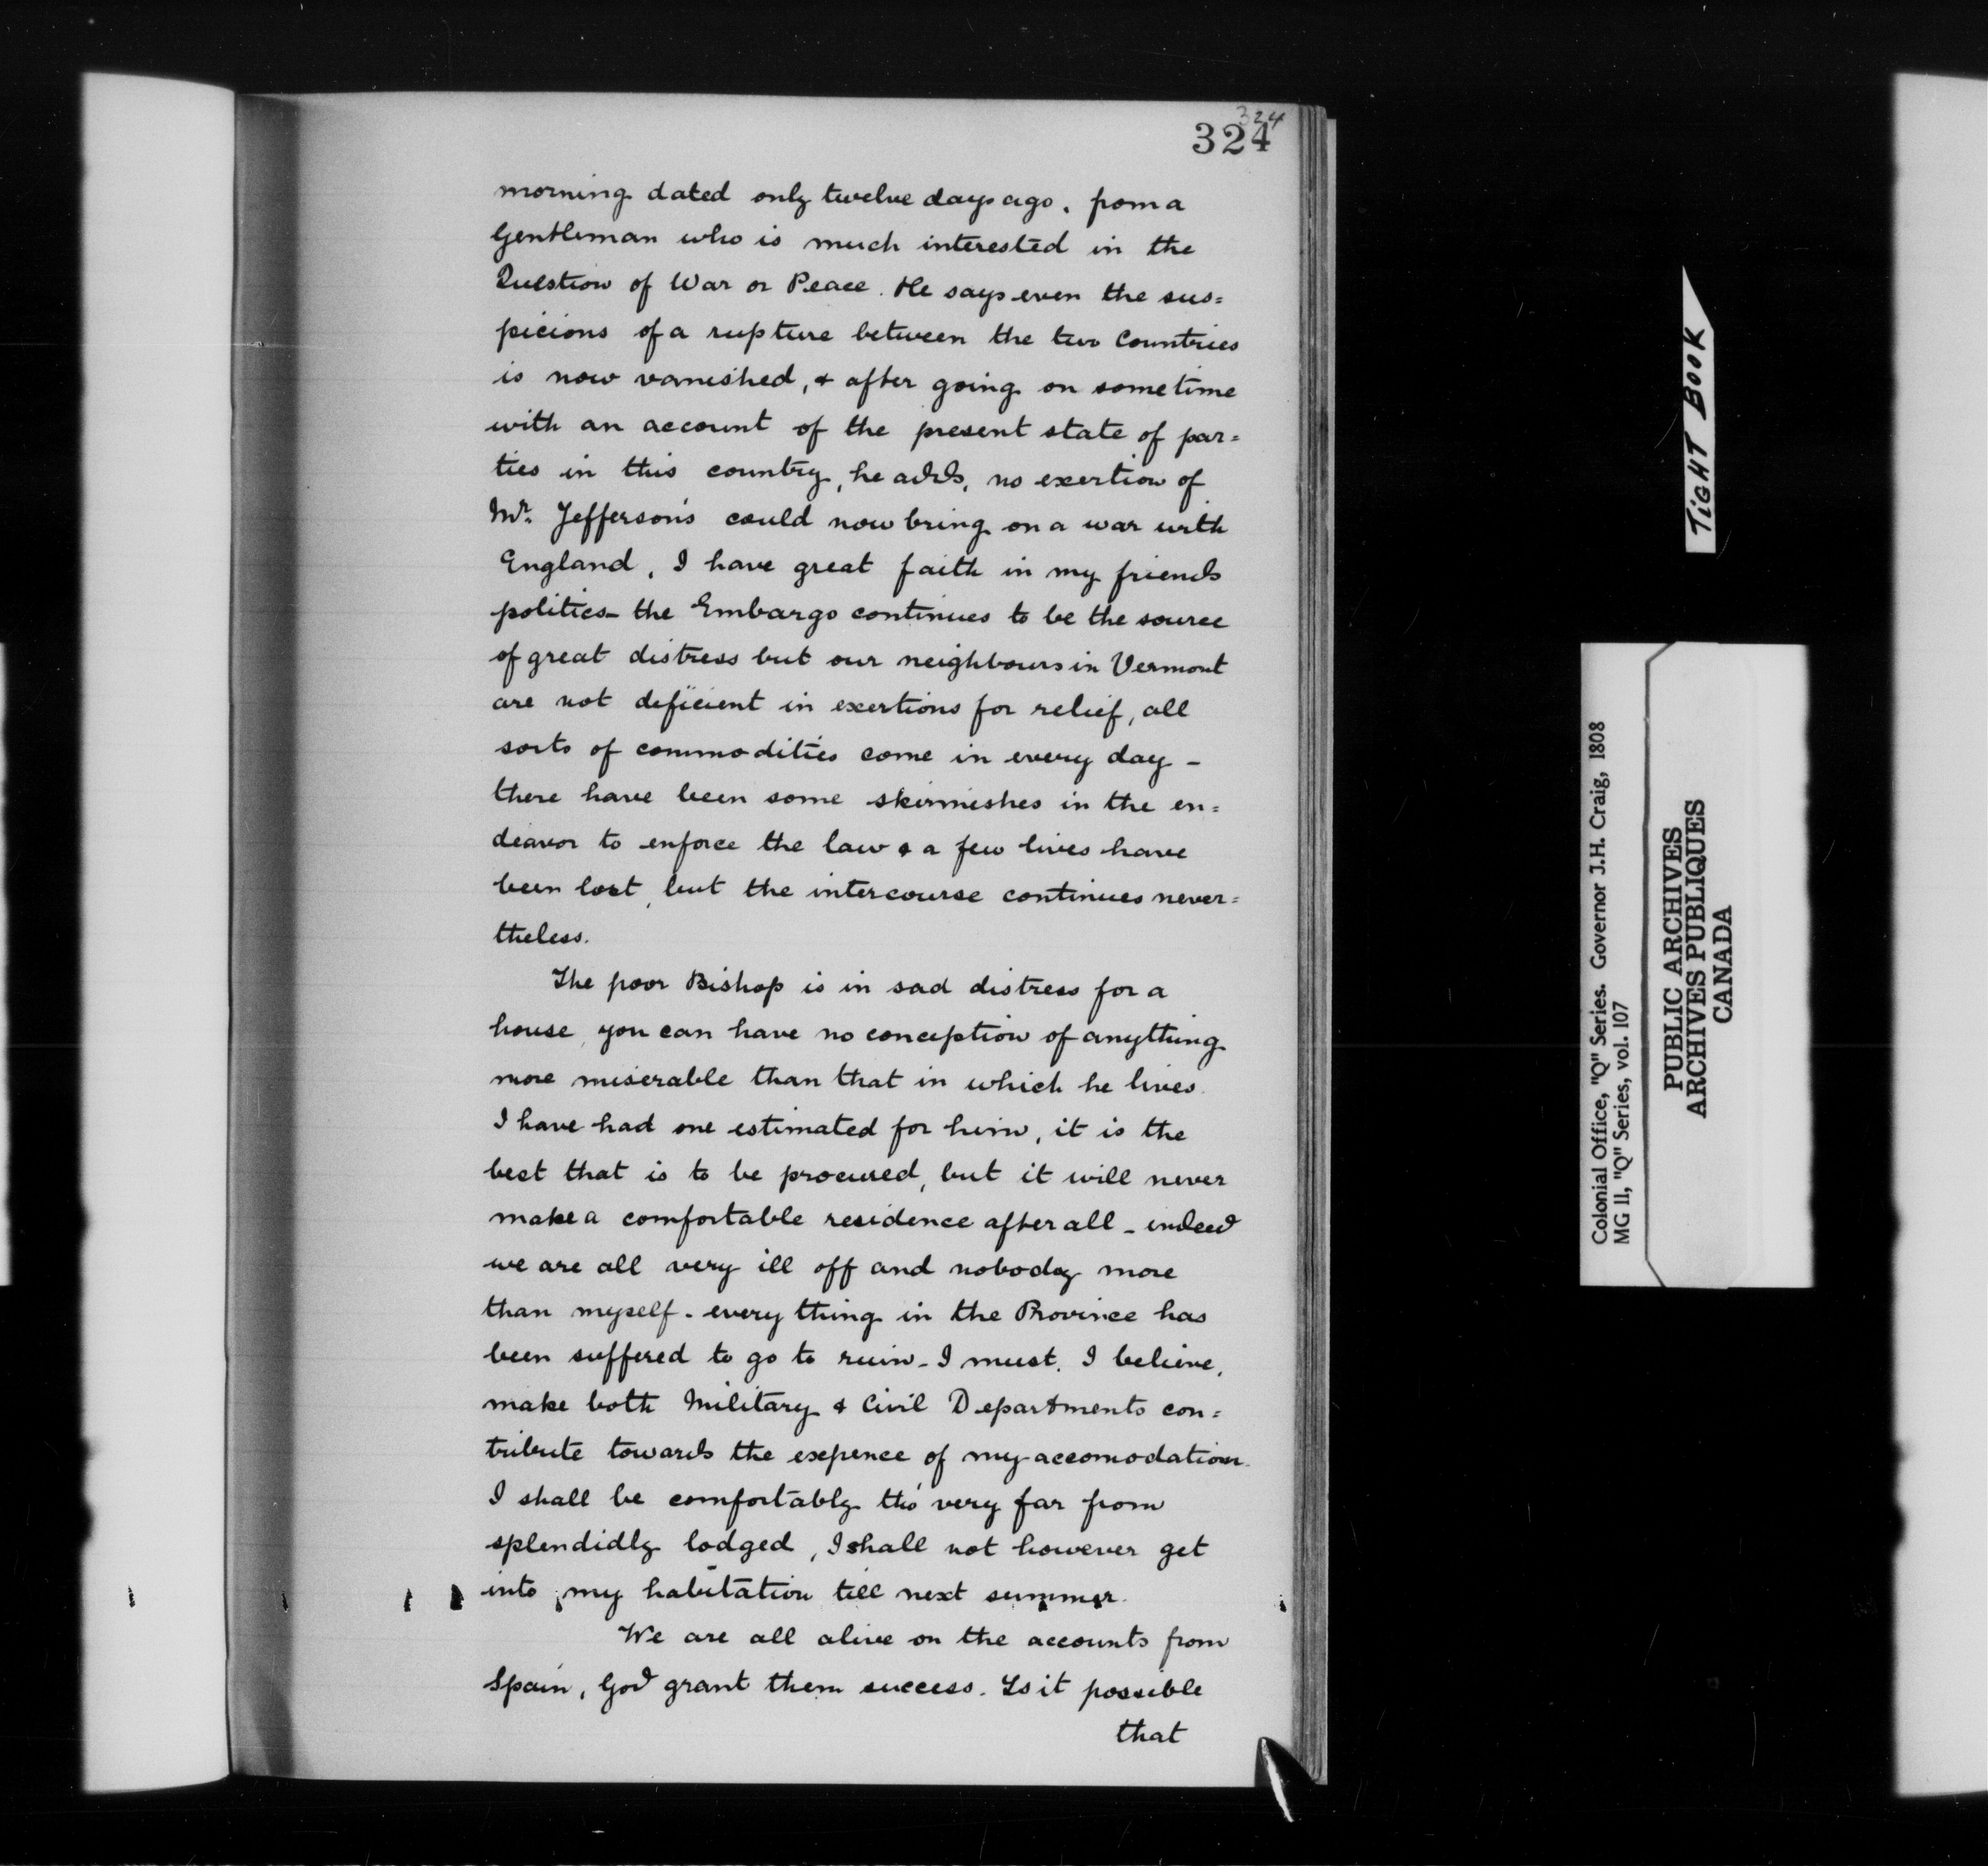 324
324
morning dated only twelve days ago, from a
Gentleman who is much interested in the
Question of War or Peace. He says even the sus=
picions of a rupture between the two Countries
is now vanished, & after going on sometime
with an account of the present state of par=
ties in this country, he adds, no exertion of
Mr. Jefferson's could now bring on a war with
England, I have great faith in my friends
politics - the Embargo continues to be the source
of great distress but our neighbours in Vermont
are not deficient in exertions for relief, all
sorts of commodities come in every day -
there have been some skirmishes in the en=
deavor to enforce the law & a few lives have
been lost, but the intercourse continues never=
theless.
The poor Bishop is in sad distress for a
house, you can have no conception of anything
more miserable than that in which he lives.
I have had one estimated for him, it is the
best that is to be procured, but it will never
make a comfortable residence after all - indeed
we are all very ill off and nobody more
than myself - every thing in the Province has
been suffered to go to ruin - I must, I believe,
make both Military & Civil Departments con=
tribute towards the expence of my accomodation.
I shall be comfortably tho' very far from
splendidly lodged, I shall not however get
into my habitation till next summer.
We are all alive on the accounts from
Spain, God grant them success. Is it possible
that
TIGHT BOOK
Colonial Office, "Q" Series. Governor J.H. Craig, 1808
MG 11, "Q" Series, vol. 107
PUBLIC ARCHIVES
ARCHIVES PUBLIQUES
CANADA